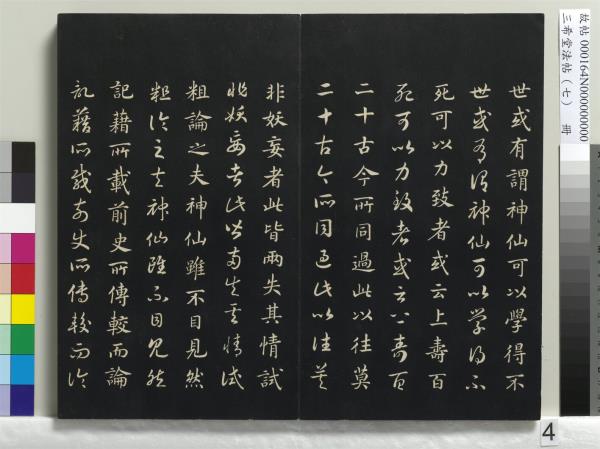 世或有謂神仙可以學得不
世或有謂神仙可以學得不
死可以力致者或云上壽百
死可以力致者或云上壽百
二十古今所同過此以往莫
二十古今所同過此以往莫
非妖妄者此皆兩失其情試
非妖妄者此皆兩失其情試
粗論之夫神仙雖不目見然
粗論之夫神仙雖不目見然
記藉所載前史所傳較而論
記藉所載前史所傳較而論
故帖 000164N000000000
三希堂法帖(七) 冊
4